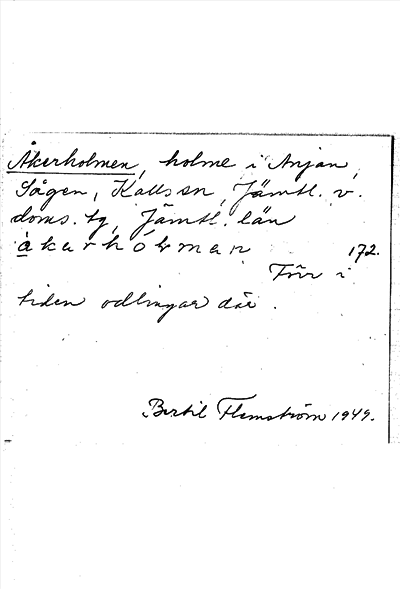 Åkerholmen, holme i Anjan,
Sågen, Kalls sn, Jämtl. v.
doms. tg, Jämtl. län
åkarhólman 172.
Förr i
tiden odlingar där.
Bertil Flemström 1949.